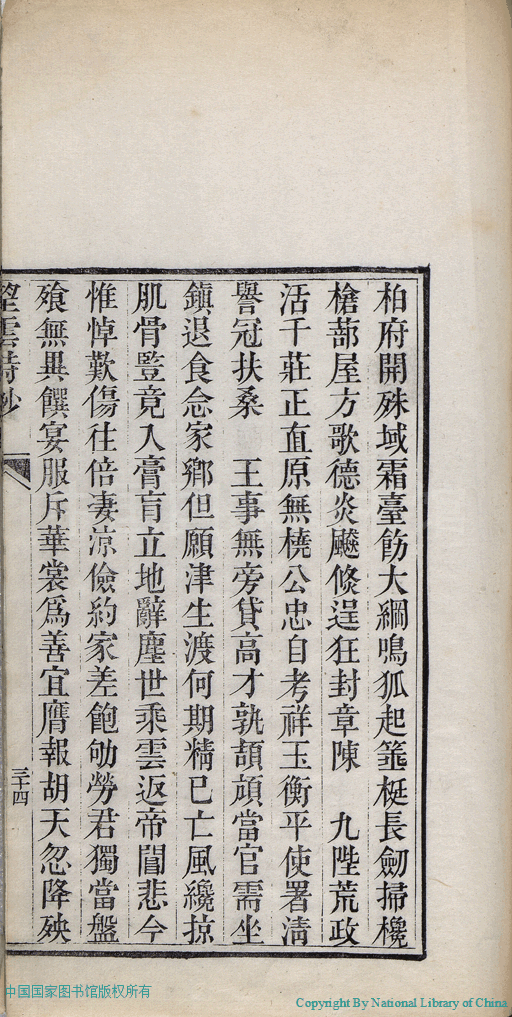 柏府開殊域霜臺飭大綱鳴狐起篝梃長劒掃欃
槍蔀屋方歌德炎颷倐逞狂封章陳　九陛荒政
活千莊正直原無橈公忠自考祥玉衡平使署清
譽冠扶桑　王事無旁貸高才孰頡頏當官需坐
鎮退食念家鄉但願津生渡何期精已亡風纔掠
肌骨豎竟入膏肓立地辭塵世乘雲返帝閶悲今
惟悼歎傷往倍凄涼儉約家差飽劬勞君獨當盤
飱無異饌宴服斥華裳爲善宜膺報胡天忽降殃
望雲詩鈔
三十四
中国国家图书馆版权所有
Copyright By National Library of China